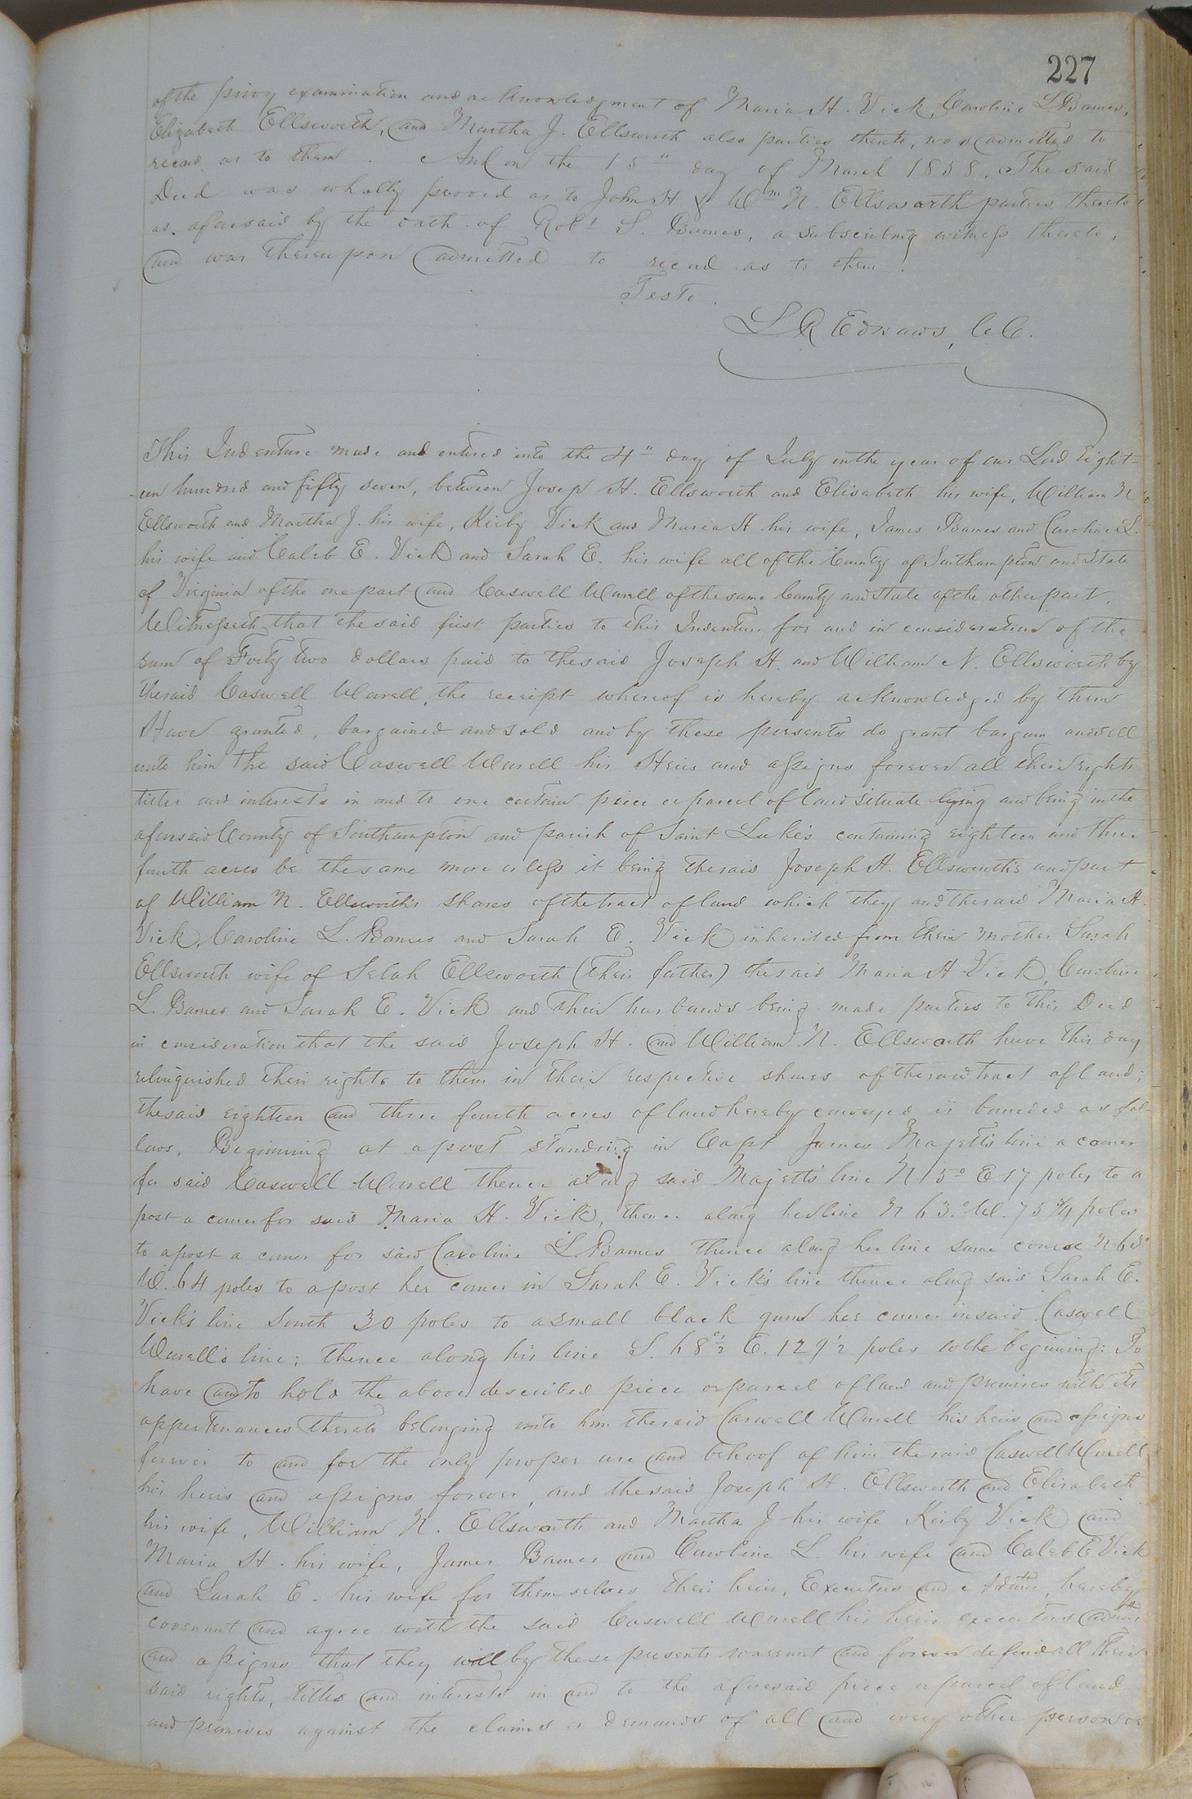 227
of the privy examination and acknowledgment of Maria H. Vick, Caroline L Barnes,
Elizabeth Ellsworth, and Martha J. Ellsworth also parties thereto, was admitted to
record as to them. And on the 15" day of March 1858. The said
Deed was wholly proved as to John H & Wm N. Ellsworth parties thereto
as aforesaid by the oath of Robt S. Barnes, a subscribing witness thereto,
and was thereupon admitted to record as to them.
Teste.
L R Edwards, C C.
This Indenture made and entered into the 4" day of July in the year of our Lord eight-
een hundred and fifty seven, between Josep H. Ellsworth and Elisabeth his wife, William N
Ellsworth and Martha J. his wife, Kirby Vick and Maria H his wife, James Barnes and Caroline L.
his wife and Caleb E. Vick and Sarah E. his wife all of the County of Southampton and State
of Virginia of the one part and Caswell Worrell of the same County and State of the other part.
Witnesseth, that the said first parties to this Indenture for and in consideration of the
sum of Forty two dollars paid to the said Joseph H. and William N. Ellsworth by
the said Caswell Worrell, the receipt whereof is hereby acknowledged by them
Have granted, bargained and sold and by these presents do grant bargain and sell
unto him the said Caswell Worrell his Heirs and assigns forever all their rights
titles and interests in and to one certain piece or parcel of land situate lying and being in the
aforesaid County of Southampton and parish of Saint Luke's containing eighteen and three
fourth acres be the same more or less it being the said Joseph H. Ellsworth's and part
of William N. Ellsworth's shares of the tract of land which they and the said Maria H.
Vick, Caroline L. Barnes and Sarah E. Vick inherited from their mother Sarah
Ellsworth wife of Selah Ellsworth (their father) the said Maria H Vick, Caroline
L. Barnes and Sarah E. Vick and their husbands being made parties to this Deed
in consideration that the said Joseph H. and William N. Ellsworth have this day
relinquished their rights to them in their respective shares of the said tract of land;
the said eighteen and three fourth acres of land hereby conveyed is bounded as fol-
lows, Beginning at a post standing in Capt James Majett's line a corner
for said Caswell Worrell thence along said Majett's line N 15° E 17 poles to a
post a corner for said Maria H. Vick, thence along her line N 63° W. 75 3/4 poles
to a post a corner for said Caroline L. Barnes thence along her line same course N 63°
W. 64 poles to a post her corner in Sarah E. Vick's line thence along said Sarah E.
Vick's line South 30 poles to a small black gum her corner in said Caswell
Worrell's line; thence along his line S. 68 1/2° E. 129 1/2 poles to the beginning: To
have and to hold the above described piece or parcel of land and premises with its
appertenances thereto belonging unto him the said Caswell Worrell his heirs and assigns
forever to and for the only proper use and behoof of him the said Caswell Worrell
his heirs and assigns forever, and the said Joseph H. Ellsworth and Elisabeth
his wife, William N. Ellsworth and Martha J his wife Kirby Vick and
Maria H. his wife, James Barnes and Caroline L. his wife and Caleb E Vick
and Sarah E. his wife for themselves their heirs, Executors and Admrs hereby
covenant and agree with the said Caswell Worrell his heirs executors admrs
and assigns that they will by these presents warrant and forever defend all their
said rights, titles and interests in and to the aforesaid piece or parcel of land
and premises against the claims or demands of all and every other person or